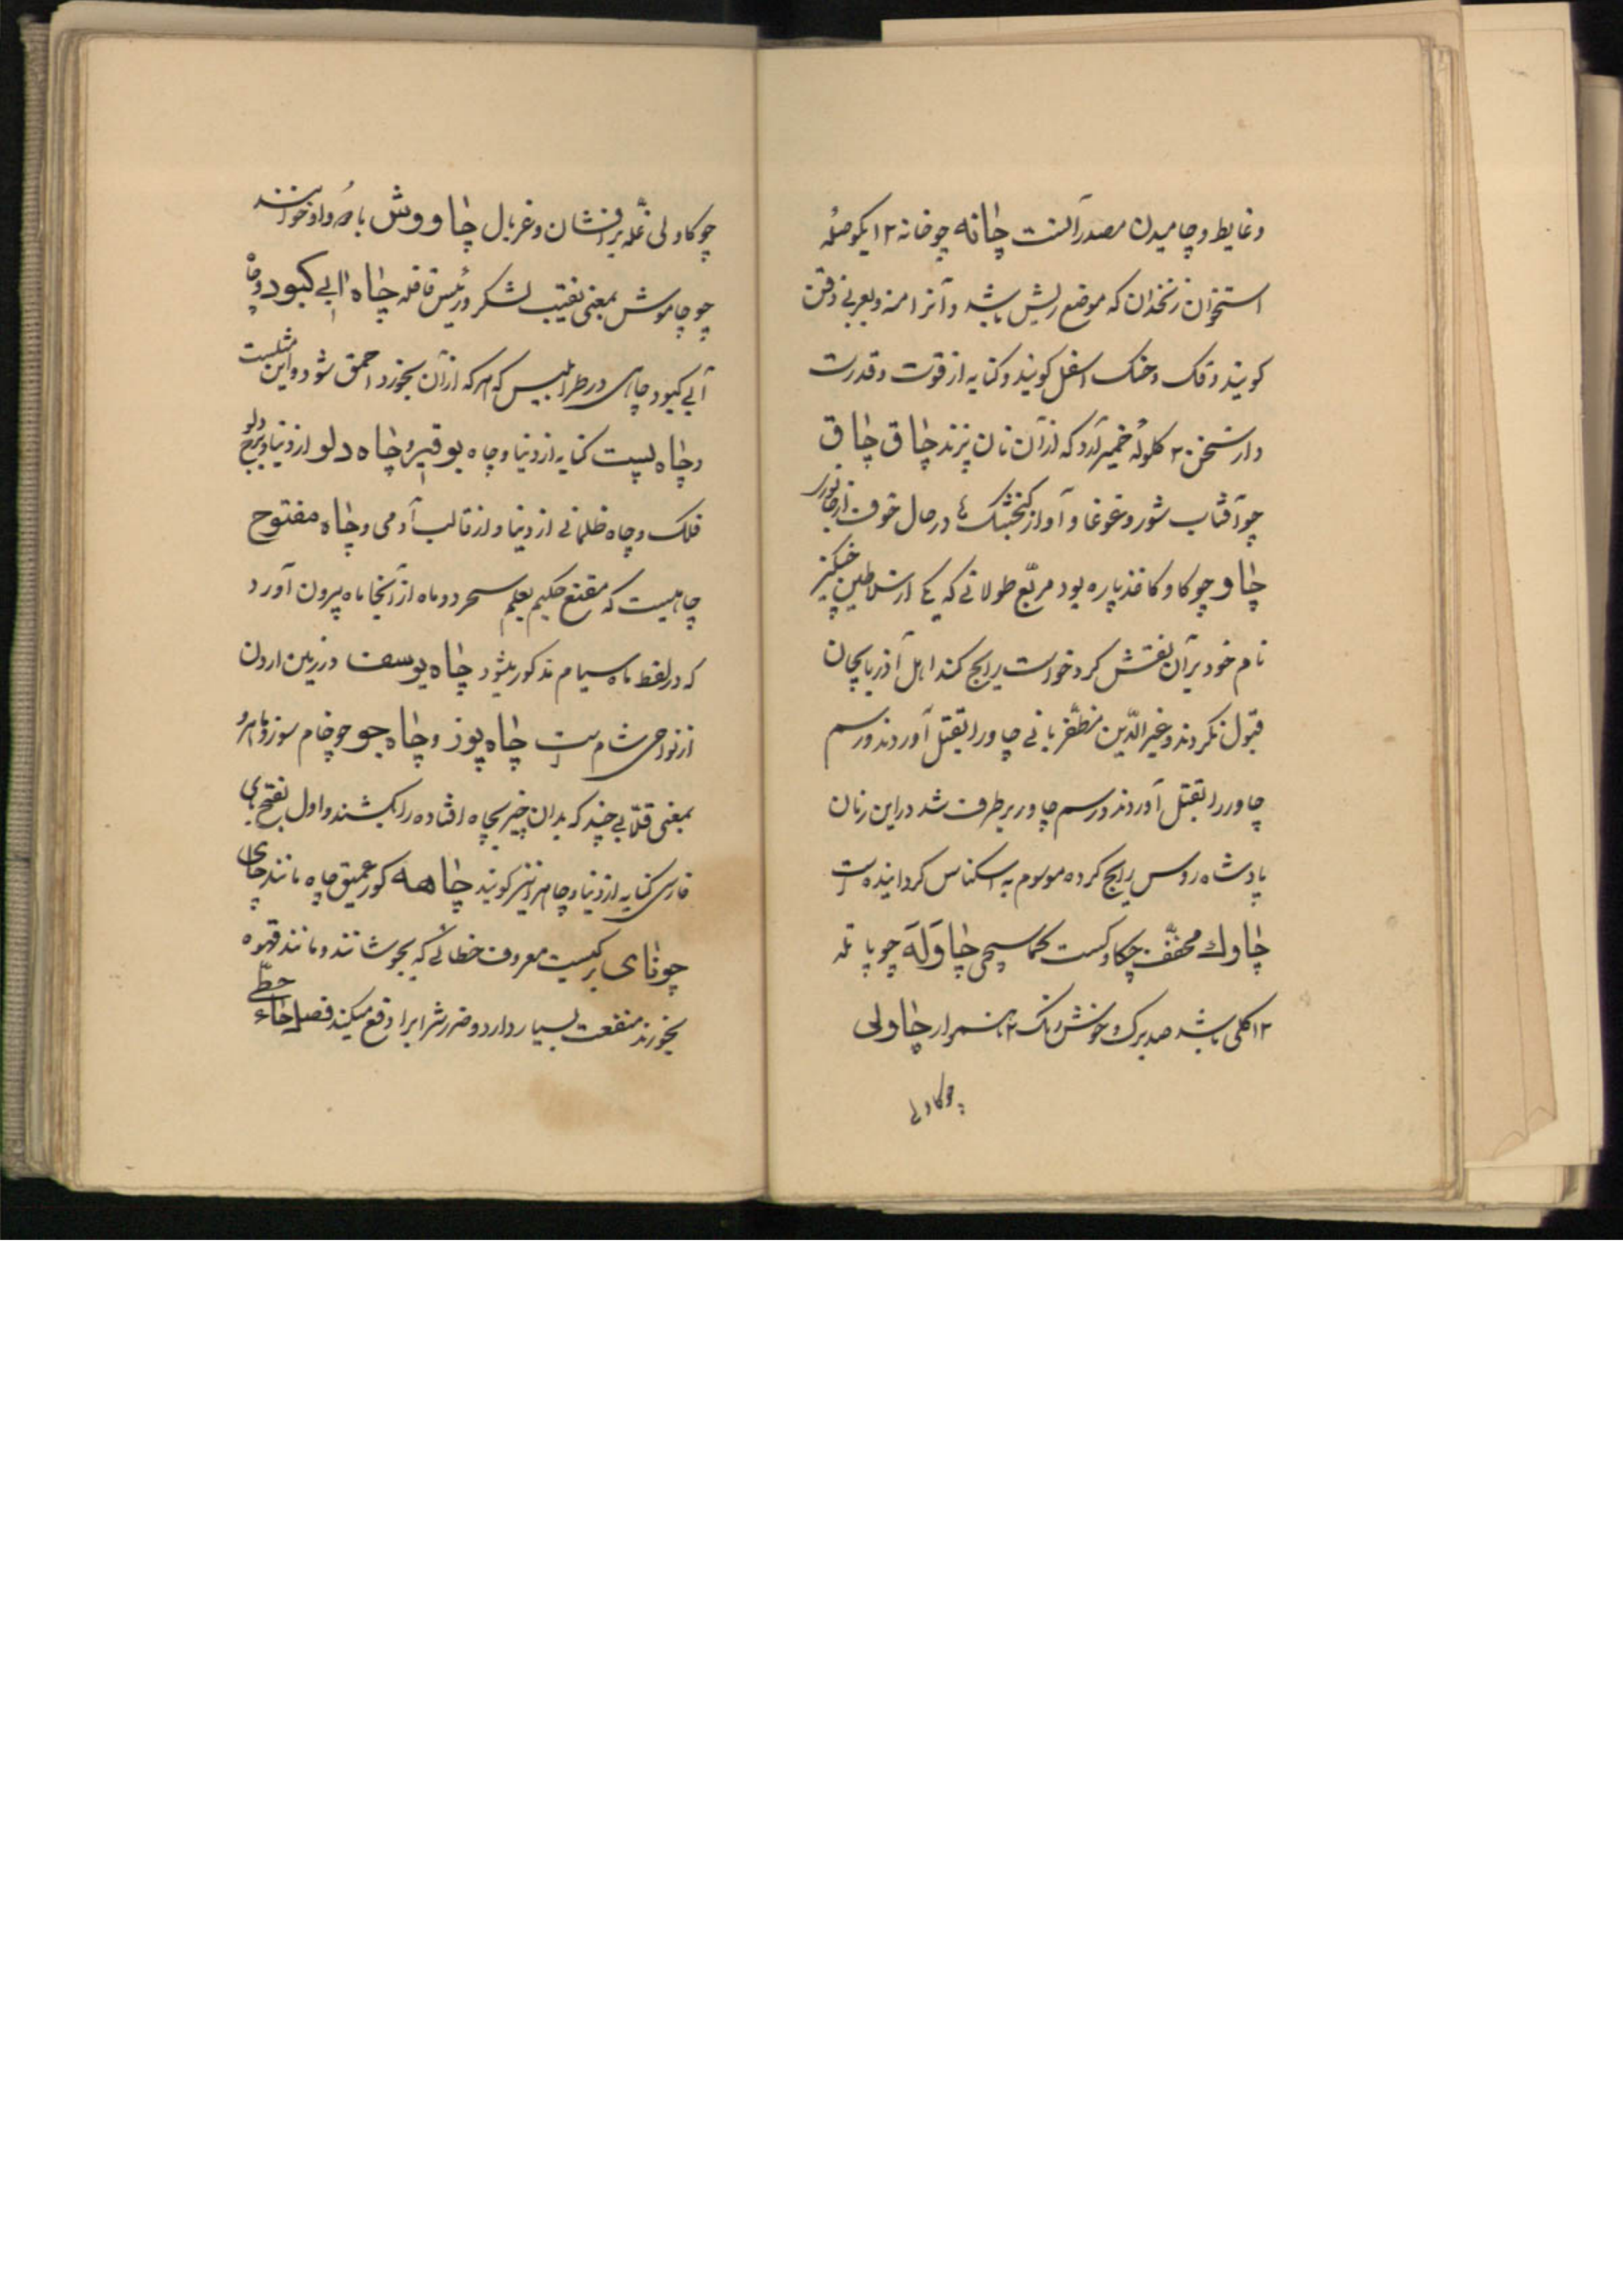 وغایط و چامیدن مصدر آنست چانه چو خانه ۱۲ یکوصله
استخوان زنخدان که موضع ریش باشد و آنرا منه و بعربی ذقن
کویند و فک و حنک اسفل کویند و کنایه از قوت و قدرت
دار سخن ۲ کلولهٔ خمیر آرد که از آن نان پزند چاق چاق
چو آفتاب شور و غوغا و آواز کنجشک در حال خوف از جانور
چاو چو کاو کاغذ پاره بود مربّع طولانی که یکی از سلاطین چنکیز
نام خود بر آن نقش کرد خواست رایج کند اهل آذربایجان
قبول نکردند و عزّالدّین مظفّر بانی چاو را بقتل آوردند و رسم
چاور را بقتل آوردند و رسم چاور برطرف شد در این زمان
پادشاه روس رایج کرده موسوم به اسکناس کردانیده است
چاوك مخفّف چکاوکست کماسیجی چاوَلَه چو پاتله
۱۲ کلی باشد صد برك و خوش رنک ۲ ناهموار چاولی
چو کاولی
چو کاولی غلّه برافشان و غربال چاووش با دو واو خوانند
چو چاموش بمعنی نقیب لشکر و رئیس قافله چاه ابی کبود و چاه
آبی کبود چاهی در طرابلس که هر که از آن بخورد احمق شود و این مثلست
و چاه پست کنایه از دنیا و چاه بوقیر و چاه دلو از دنیا و برج دلو
فلک و چاه ظلمانی از دنیا و از قالب آدمی و چاه مفتوح
چاهیست که مقنع حکیم بعلم سحر دو ماه از آنجا ماه بیرون آورد
که در لفظ ماه سیام مذکور میشود چاه یوسف در زمین اردن
از نواحی شام است چاه پوز و چاه جو چو خام سوز و ماهرو
بمعنی قلّابی چند که بدان چیز بچاه افتاده را بکشند و اول بفتح بای
فارسی کنایه از دنیا و چاه هر از نیز کویند چاهه کور عمیق چاه مانند چای
چو نای برکیست معروف خطائی که بجوشانند و مانند قهوه
بخورند منفعت بسیار دارد و ضرر شرابرا دفع میکند فصل حاء حطّی